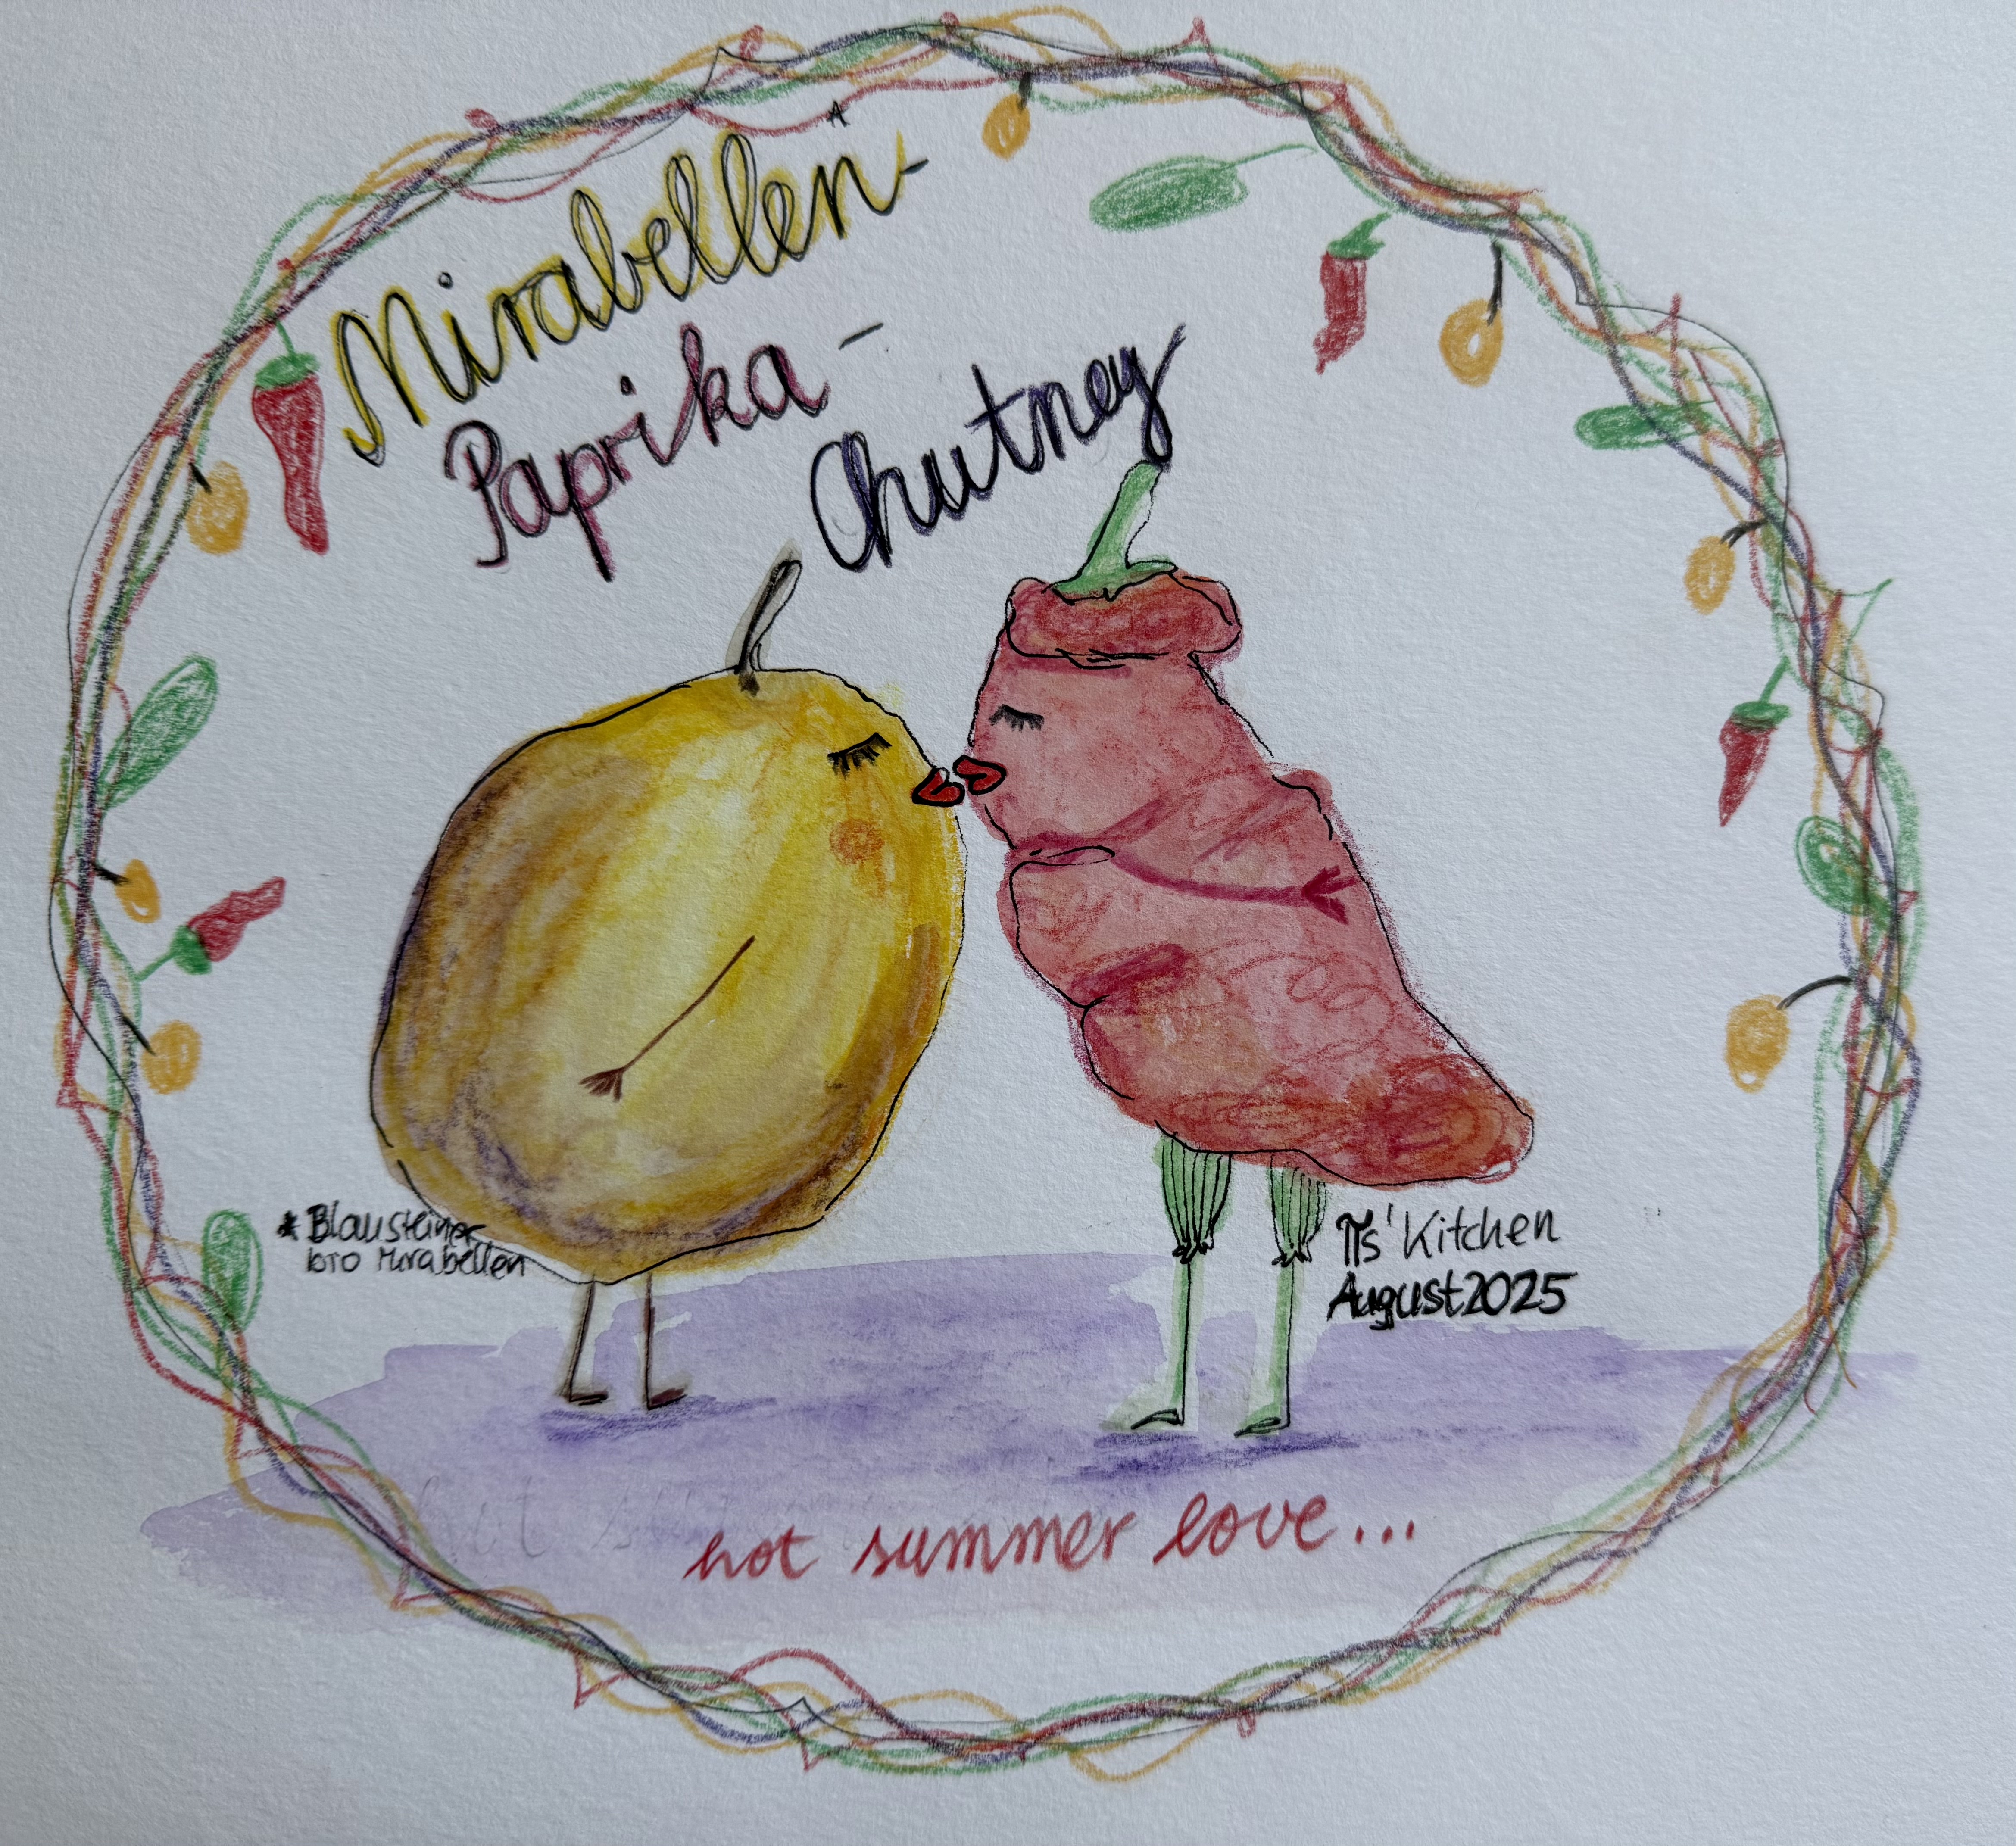 Mirabellen*-
Paprika-
Chutney
* Blausteiner
bio Mirabellen
πs' Kitchen
August 2025
hot summer love...